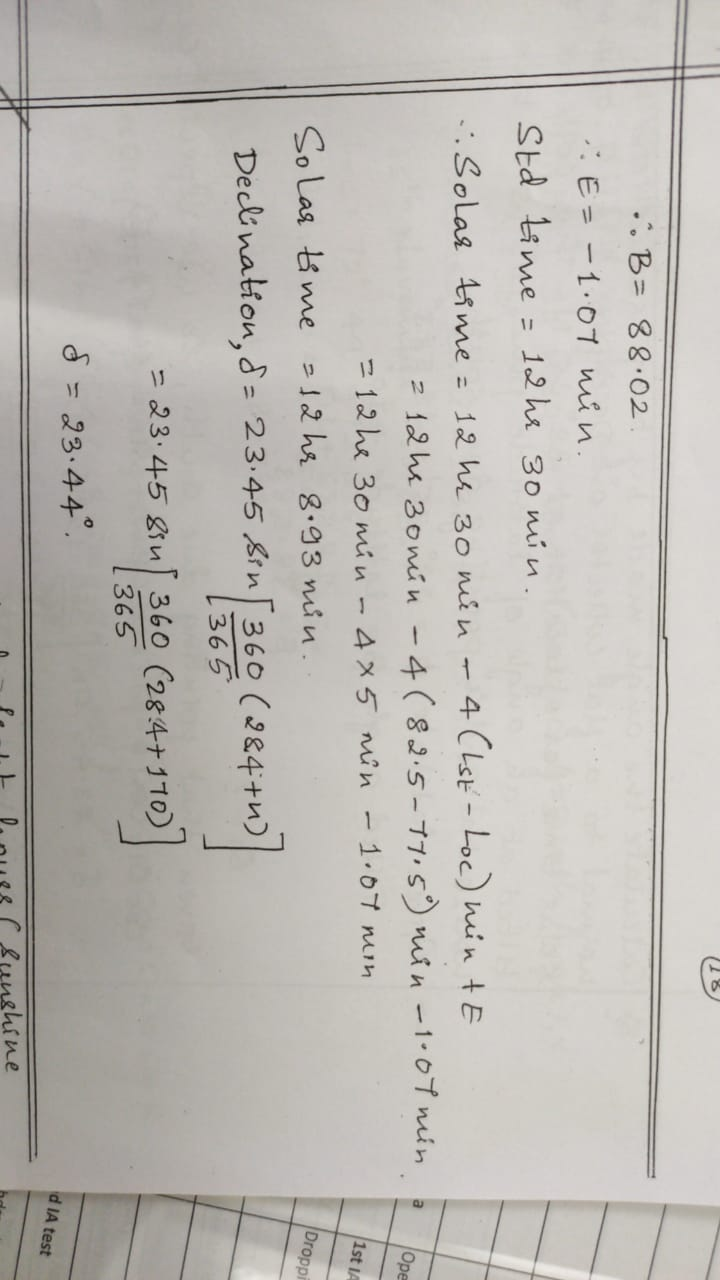 18
∴ B = 88.02.
∴ E = -1.07 min.
Std time = 12 hr 30 min.
∴ Solar time = 12 hr 30 min - 4 (Lst - Loc) min + E
= 12 hr 30 min - 4 (82.5 - 77.5°) min - 1.07 min.
= 12 hr 30 min - 4 × 5 min - 1.07 min
Solar time = 12 hr 8.93 min.
Declination, δ = 23.45 sin [360/365 (284+n)]
= 23.45 sin [360/365 (284+170)]
δ = 23.44°.
hours (Sunshine
Ope
1st IA
Droppi
d IA test